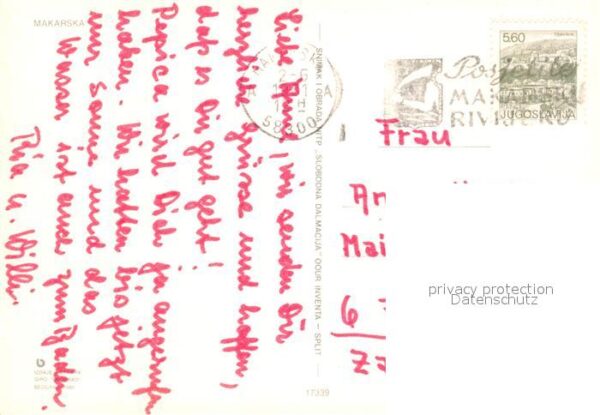 MAKARSKA
Liebe Anni, wir senden Dir
herzliche Grüsse und hoffen,
daß es Dir gut geht!
Pepica wird Dich ja angerufen
haben. Wir hatten bis jetzt
nur Sonne und das
Wasser ist auch zum Baden.
Tina u. Willi.
SNIMAK I OBRADA NTP „SLOBODNA DALMACIJA" OOUR INVENTA – SPLIT
17339
58300
5.60
JUGOSLAVIJA
Posjetite
MAKARSKU
RIVIJERU
Frau
An
Mai
6
Za
privacy protection
Datenschutz